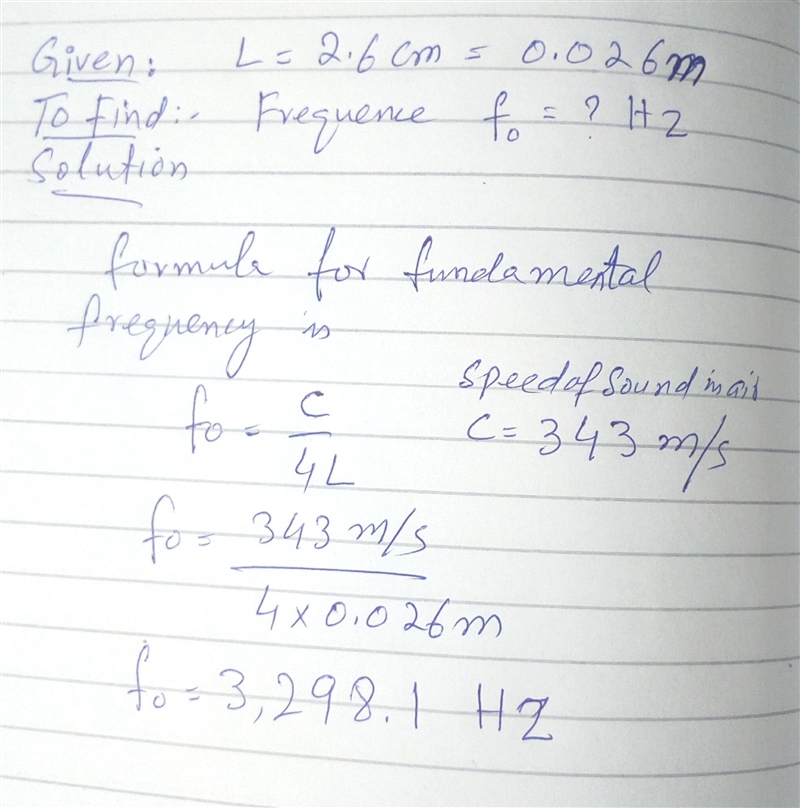 Given: L = 2.6 cm = 0.026m
To Find:- Frequence f₀ = ? HZ
Solution
formula for fundamental
frequency is
speed of sound in air
f₀ = C/4L C = 343 m/s
f₀ = 343 m/s / 4 x 0.026m
f₀ = 3,298.1 HZ